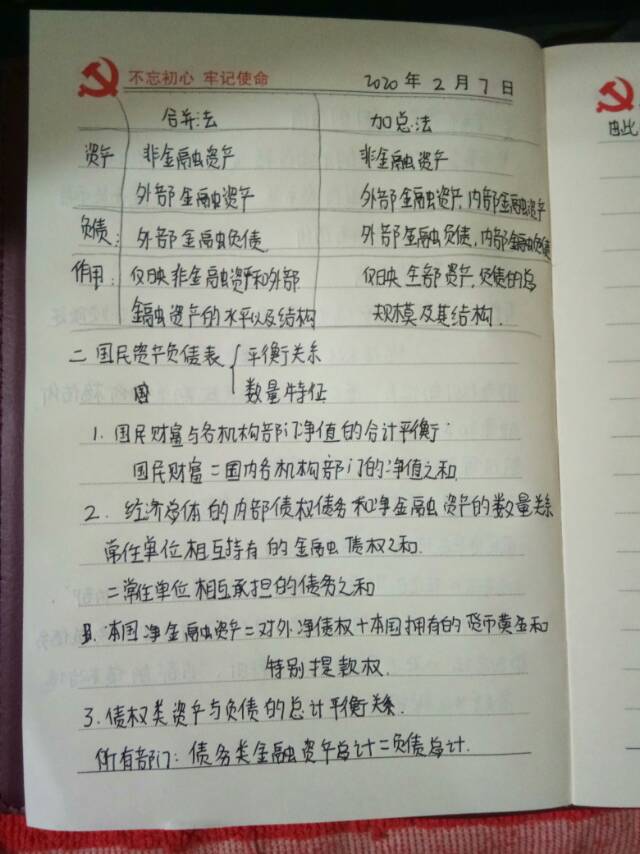 不忘初心 牢记使命
2020 年 2 月 7 日
合并法 加总法
资产 非金融资产 非金融资产
外部金融资产 外部金融资产,内部金融资产
负债: 外部金融负债. 外部金融负债,内部金融负债
作用: 仅日映非金融资产和外部 仅日映全部资产.负债的总
金融资产的水平以及结构 规模及其结构.
二 国民资产负债表 { 平衡关系
数量特征
1. 国民财富与各机构部门净值的合计平衡:
国民财富=国内各机构部门的净值之和.
2. 经济总体的内部债权债务和净金融资产的数量关系
常住单位相互持有的金融债权之和.
=常住单位相互承担的债务之和
本国净金融资产=对外净债权+本国拥有的货币黄金和
特别提款权.
3. 债权类资产与负债的总计平衡关系.
所有部门: 债务类金融资产总计=负债总计.
由此